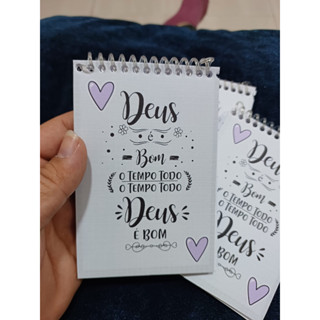 Deus
é
Bom
O TEMPO TODO
O TEMPO TODO
Deus
É BOM
Deus
é
Bom
O TEMPO TODO
O TEMPO TODO
Deus
É BOM